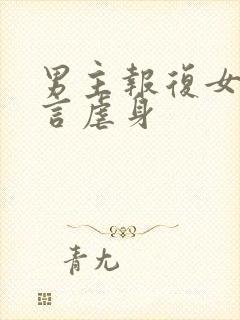 男主報復女
言虐身
青尢